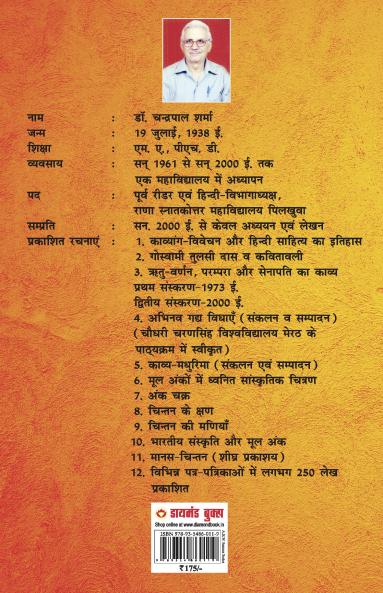 नाम : डॉ. चन्द्रपाल शर्मा
जन्म : 19 जुलाई, 1938 ई.
शिक्षा : एम. ए., पीएच. डी.
व्यवसाय : सन् 1961 से सन् 2000 ई. तक
एक महाविद्यालय में अध्यापन
पद : पूर्व रीडर एवं हिन्दी-विभागाध्यक्ष,
राणा स्नातकोत्तर महाविद्यालय पिलखुवा
सम्प्रति : सन. 2000 ई. से केवल अध्ययन एवं लेखन
प्रकाशित रचनाएं : 1. काव्यांग-विवेचन और हिन्दी साहित्य का इतिहास
2. गोस्वामी तुलसी दास व कवितावली
3. ऋतु-वर्णन, परम्परा और सेनापति का काव्य
प्रथम संस्करण-1973 ई.
द्वितीय संस्करण-2000 ई.
4. अभिनव गद्य विधाएँ (संकलन व सम्पादन)
(चौधरी चरणसिंह विश्वविद्यालय मेरठ के
पाठ्यक्रम में स्वीकृत)
5. काव्य-मधुरिमा (संकलन एवं सम्पादन)
6. मूल अंकों में ध्वनित सांस्कृतिक चित्रण
7. अंक चक्र
8. चिन्तन के क्षण
9. चिन्तन की मणियाँ
10. भारतीय संस्कृति और मूल अंक
11. मानस-चिन्तन (शीघ्र प्रकाशय)
12. विभिन्न पत्र-पत्रिकाओं में लगभग 250 लेख
प्रकाशित
डायमंड बुक्स
Shop online at www.diamondbook.in
ISBN 978-93-5486-001-9
₹ 175/-